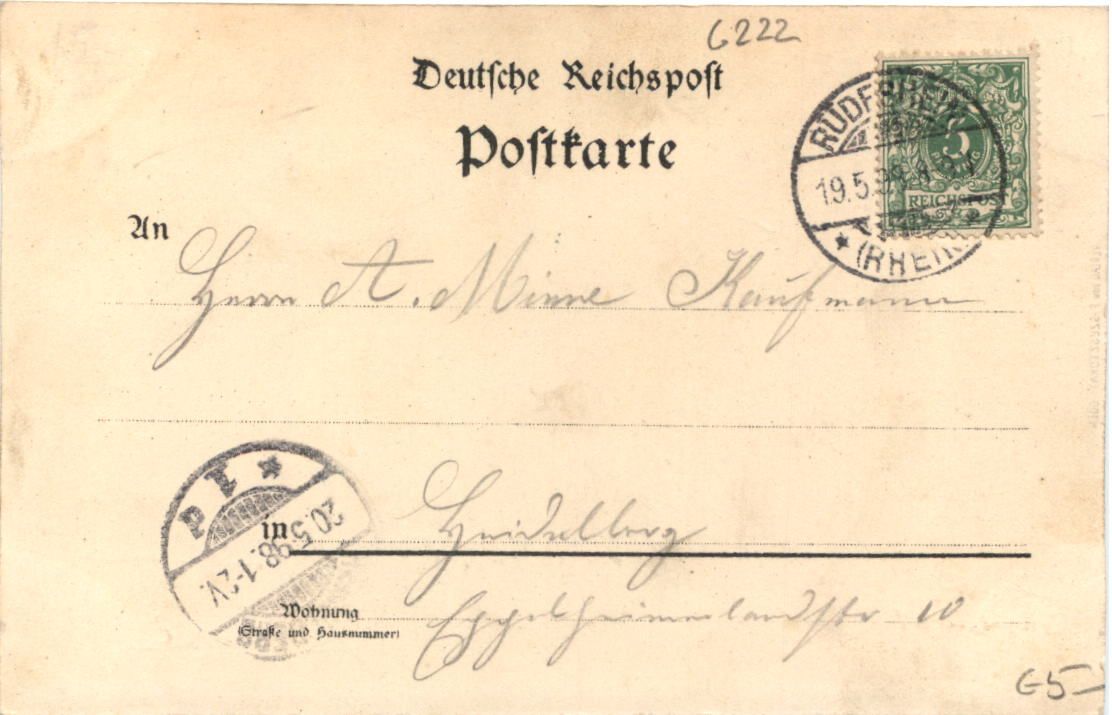 6222
Deutsche Reichspost
Postkarte
RÜDESHEIM
19.5.98.
(RHEIN)
5
PFENNIG
REICHSPOST
An
Herrn A. Minne Kaufmann
in Heidelberg
20.5.98.1-2V.
Wohnung
(Straße und Hausnummer)
Eppelheimerlandstr 10
65-